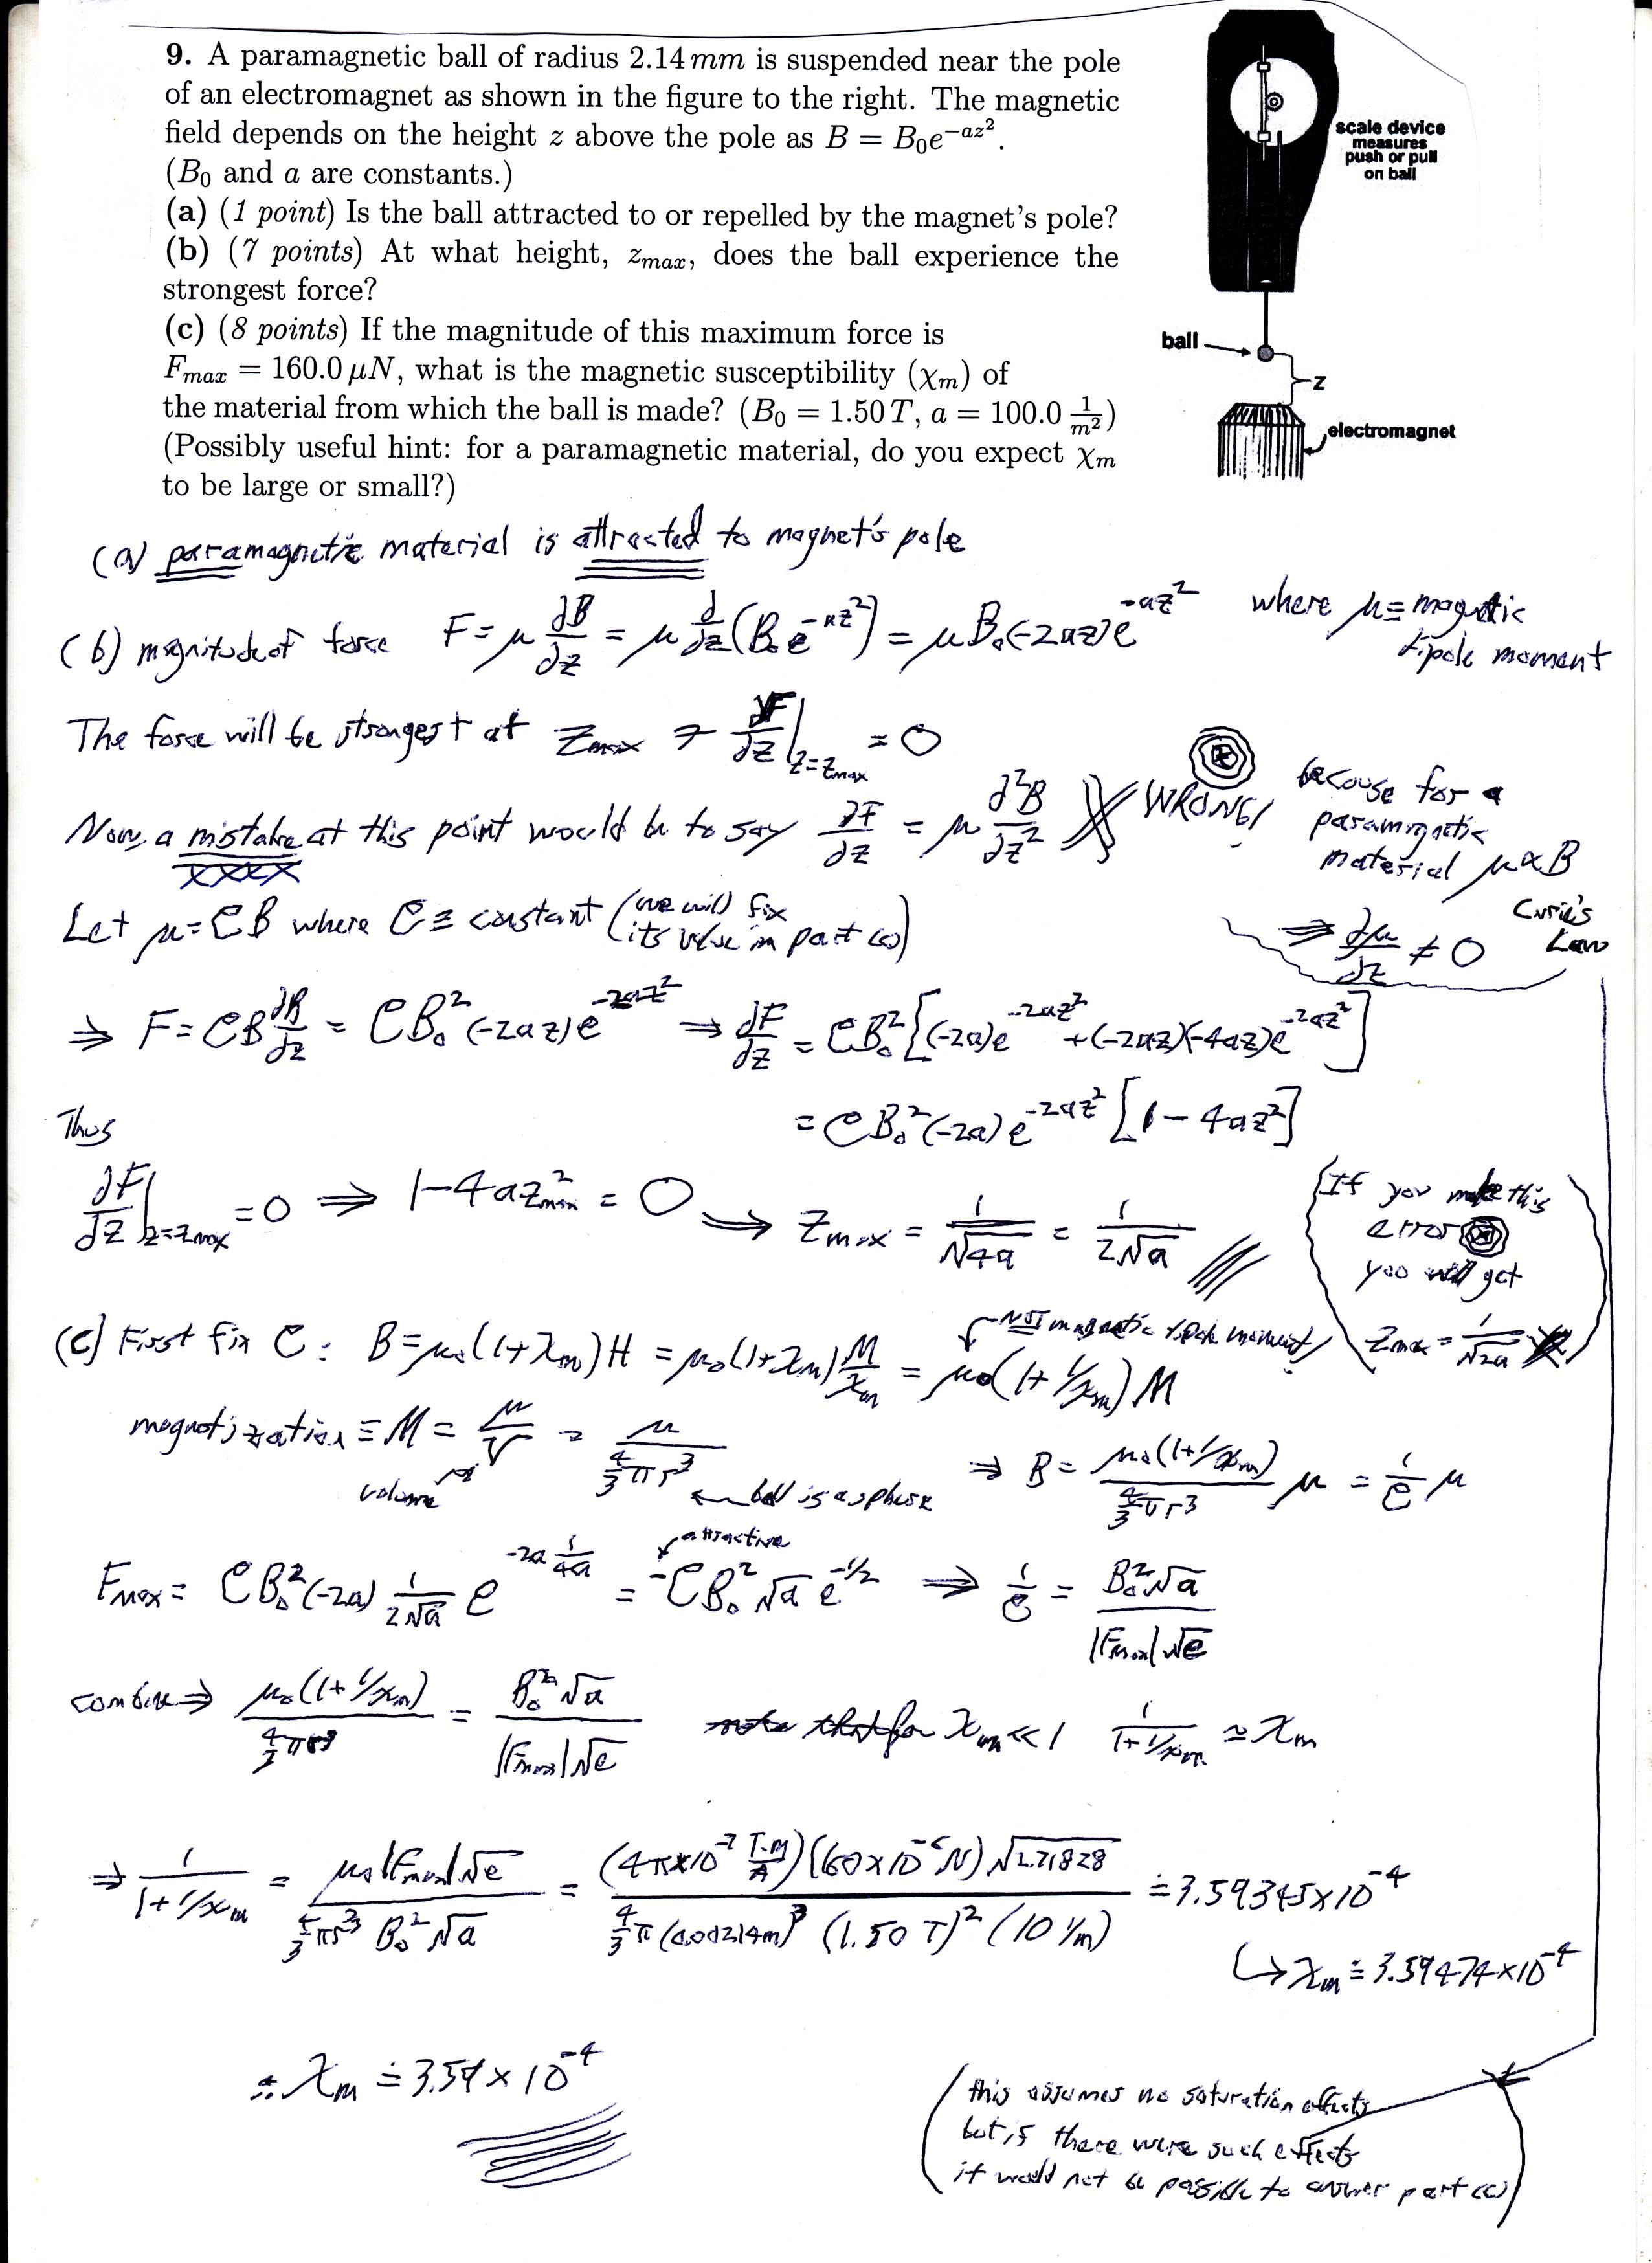 9. A paramagnetic ball of radius 2.14 mm is suspended near the pole
of an electromagnet as shown in the figure to the right. The magnetic
field depends on the height z above the pole as B = B₀e^{-az²}.
(B₀ and a are constants.)
(a) (1 point) Is the ball attracted to or repelled by the magnet's pole?
(b) (7 points) At what height, z_{max}, does the ball experience the
strongest force?
(c) (8 points) If the magnitude of this maximum force is
F_{max} = 160.0 μN, what is the magnetic susceptibility (χ_m) of
the material from which the ball is made? (B₀ = 1.50 T, a = 100.0 1/m²)
(Possibly useful hint: for a paramagnetic material, do you expect χ_m
to be large or small?)
scale device
measures
push or pull
on ball
ball
z
electromagnet
(a) paramagnetic material is attracted to magnet's pole
(b) magnitude of force F = μ ∂B/∂z = μ d/dz (B₀e^{-az²}) = μB₀(-2az)e^{-az²} where μ ≡ magnetic
dipole moment
The force will be strongest at z_{max} → ∂F/∂z |_{z=z_{max}} = 0
Now, a mistake at this point would be to say ∂F/∂z = μ ∂²B/∂z² WRONG!
because for a
paramagnetic
material μ ∝ B
Curie's
Law
⇒ ∂μ/∂z ≠ 0
Let μ = CB where C ≡ constant (we will fix
its value in part (c))
⇒ F = CB ∂B/∂z = CB₀²(-2az)e^{-2az²} ⇒ dF/dz = CB₀²[(-2a)e^{-2az²} + (-2az)(-4az)e^{-2az²}]
= CB₀²(-2a)e^{-2az²}[1 - 4az²]
Thus
∂F/∂z |_{z=z_{max}} = 0 ⇒ 1 - 4az²_{max} = 0 ⇒ z_{max} = 1/√4a = 1/2√a
(If you make this
error
you will get
z_{max} = 1/√2a)
(c) First fix C: B = μ₀(1+χ_m)H = μ₀(1+χ_m) M/χ_m = μ₀(1+1/χ_m)M
NOT magnetic dipole moment
magnetization ≡ M = μ/V = μ/(4/3 πr³) ⇒ B = μ₀(1+1/χ_m)/(4/3 πr³) μ = 1/C μ
volume
ball is a sphere
attractive
F_{max} = CB₀²(-2a) 1/2√a e^{-2a 1/4a} = -CB₀²√a e^{-1/2} ⇒ 1/C = B₀²√a/|F_{max}|√e
combine ⇒ μ₀(1+1/χ_m)/(4/3 πr³) = B₀²√a/|F_{max}|√e note that for χ_m << 1 1/(1+1/χ_m) ≃ χ_m
⇒ 1/(1+1/χ_m) = μ₀|F_{max}|√e/(4/3 πr³ B₀²√a) = (4π×10⁻⁷ T·m/A)(160×10⁻⁶N)√2.71828/(4/3 π(0.00214m)³(1.50 T)²(10 1/m)) ≐ 3.59345×10⁻⁴
↳ χ_m ≐ 3.59474×10⁻⁴
∴ χ_m ≐ 3.59×10⁻⁴
(this assumes no saturation effects
but if there were such effects
it would not be possible to answer part (c))